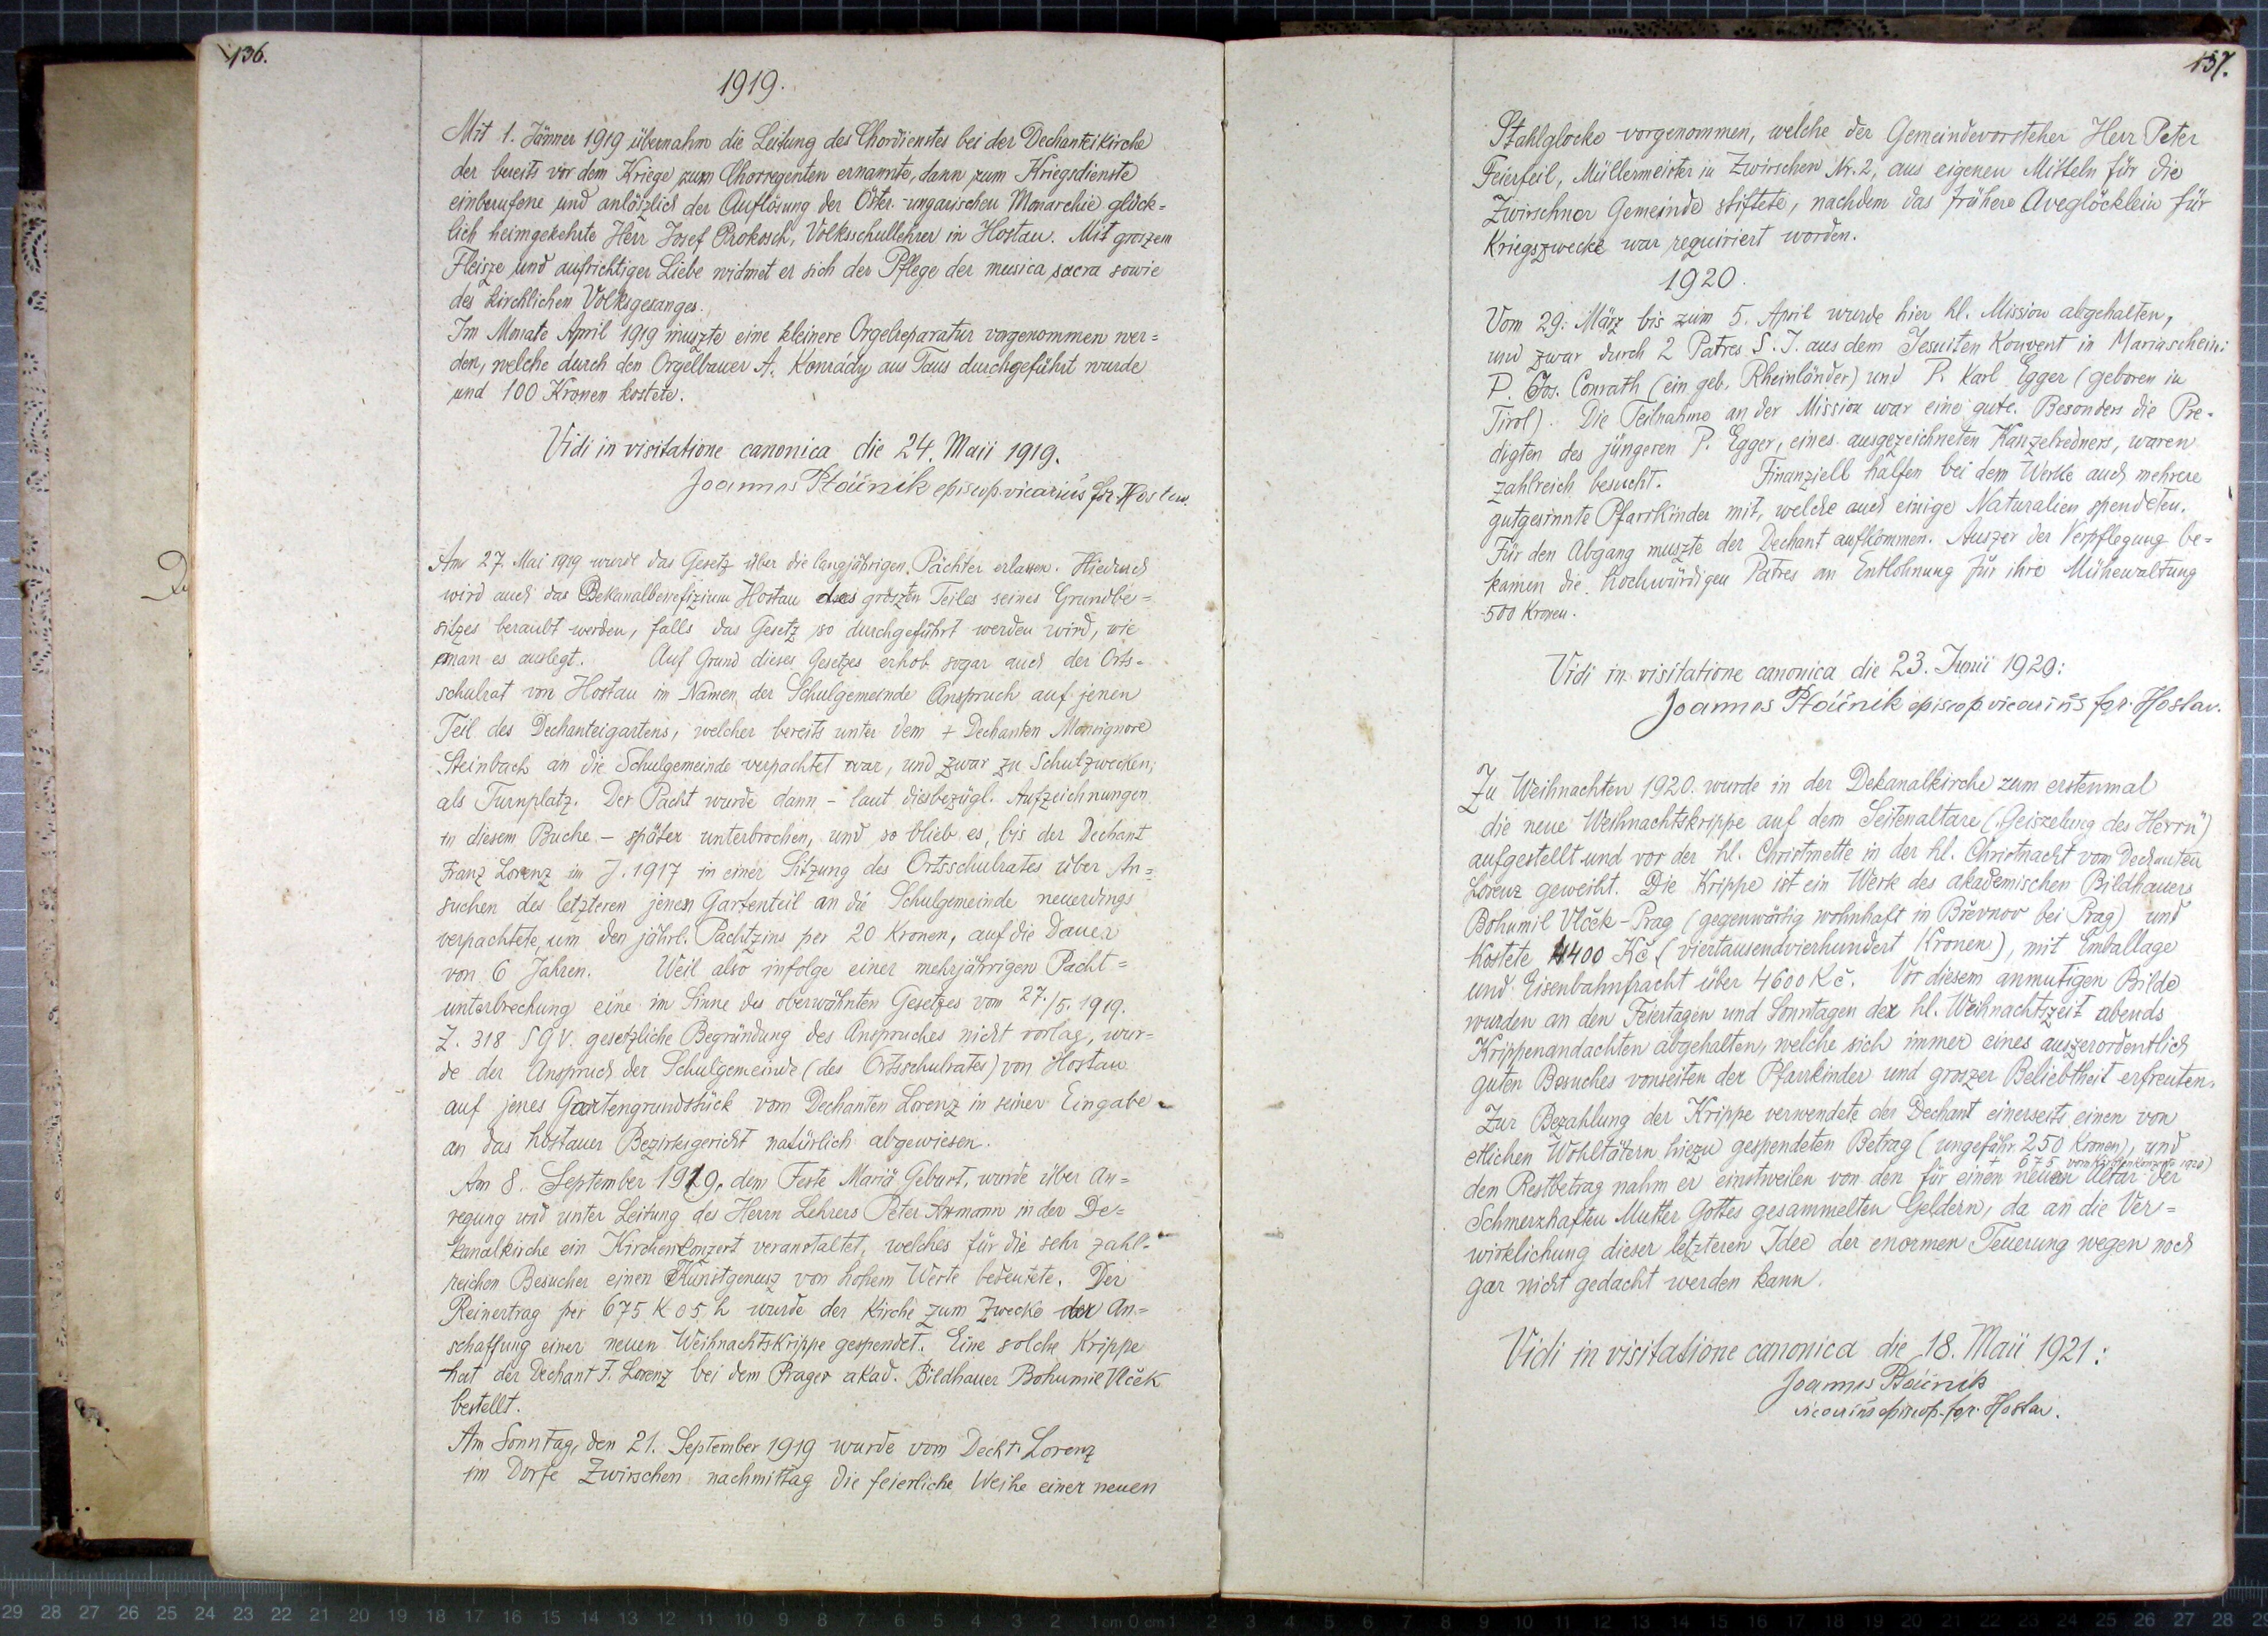 136.
1919.
Mit 1. Jänner 1919 übernahm die Leitung des Chordienstes bei der Dechanteikirche
der bereits vor dem Kriege zum Chorregenten ernannte, dann zum Kriegsdienste
einberufene und anläszlich der Auflösung der Öster.-ungarischen Monarchie glück=
lich heimgekehrte Herr Josef Prokosch, Volksschullehrer in Hostau. Mit groszem
Fleisze und aufrichtiger Liebe widmet er sich der Pflege der musica sacra sowie
des kirchlichen Volksgesanges.
Im Monate April 1919 muszte eine kleinere Orgelreparatur vorgenommen wer=
den, welche durch den Orgelbauer A. Konrády aus Taus durchgeführt wurde
und 100 Kronen kostete.
Vidi in visitatione canonica die 24. Maii 1919.
Joannes Ptáčník episcop. vicarius for. Hostau.
Am 27. Mai 1919 wurde das Gesetz über die langjährigen Pächter erlassen. Hiedurch
wird auch das Dekanalbenefizium Hostau des groszten Teiles seines Grundbe=
sitzes beraubt werden, falls das Gesetz so durchgeführt werden wird, wie
man es auslegt. Auf Grund dieses Gesetzes erhob sogar auch der Orts=
schulrat von Hostau im Namen der Schulgemeinde Anspruch auf jenen
Teil des Dechanteigartens, welcher bereits unter dem + Dechanten Monsignore
Steinbach an die Schulgemeinde verpachtet war, und zwar zu Schulzwecken,
als Turnplatz. Der Pacht wurde dann - laut diesbezügl. Aufzeichnungen
in diesem Buche - später unterbrochen, und so blieb es, bis der Dechant
Franz Lorenz im J. 1917 in einer Sitzung des Ortsschulrates über An=
suchen des letzteren jenen Gartenteil an die Schulgemeinde neuerdings
verpachtete, um den jährl. Pachtzins per 20 Kronen, auf die Dauer
von 6 Jahren. Weil also infolge einer mehrjährigen Pacht=
unterbrechung eine im Sinne des oberwähnten Gesetzes vom 27./5. 1919.
Z. 318 S G V. gesetzliche Begründung des Anspruches nicht vorlag, wur=
de der Anspruch der Schulgemeinde (des Ortsschulrates) von Hostau
auf jenes Gartengrundstück vom Dechanten Lorenz in seiner Eingabe
an das hostauer Bezirksgericht natürlich abgewiesen.
Am 8. September 1919, dem Feste Mariä Geburt, wurde über An=
regung und unter Leitung des Herrn Lehrers Peter in der De=
kanalkirche ein Kirchenkonzert veranstaltet, welches für die sehr zahl=
reichen Besucher einen Kunstgenusz von hohem Werte bedeutete. Der
Reinertrag per 675 K 05 h wurde der Kirche zum Zwecke der An=
schaffung einer neuen Weihnachtskrippe gespendet. Eine solche Krippe
hat der Dechant F. Lorenz bei dem Prager akad. Bildhauer Bohumil Vlček
bestellt.
Am Sonntag, den 21. September 1919 wurde vom Decht. Lorenz
im Dorfe Zwirschen nachmittag die feierliche Weihe einer neuen
137.
Stahlglocke vorgenommen, welche der Gemeindevorsteher Herr Peter
Feierfeil, Müllermeister in Zwirschen Nr. 2, aus eigenen Mitteln für die
Zwirschner Gemeinde stiftete, nachdem das frühere Aveglöcklein für
Kriegszwecke war requiriert worden.
1920.
Vom 29. März bis zum 5. April wurde hier hl. Mission abgehalten,
und zwar durch 2 Patres S. J. aus dem Jesuiten Konvent in Mariaschein:
P. Jos. Conrath (ein geb. Rheinländer) und P. Karl Egger (geboren in
Tirol). Die Teilnahme an der Mission war eine gute. Besonders die Pre=
digten des jüngeren P. Egger, eines ausgezeichneten Kanzelredners, waren
zahlreich besucht. Finanziell halfen bei dem Werke auch mehrere
gutgesinnte Pfarrkinder mit, welche auch einige Naturalien spendeten.
Für den Abgang muszte der Dechant aufkommen. Auszer der Verpflegung be=
kamen die hochwürdigen Patres an Entlohnung für ihre Mühewaltung
500 Kronen.
Vidi in visitatione canonica die 23. Junii 1920:
Joannes Ptáčník episcop. vicarius for. Hostau.
Zu Weihnachten 1920 wurde in der Dekanalkirche zum erstenmal
die neue Weihnachtskrippe auf dem Seitenaltare („Geiszelung des Herrn")
aufgestellt und vor der hl. Christmette in der hl. Christnacht vom Dechanten
Lorenz geweiht. Die Krippe ist ein Werk des akademischen Bildhauers
Bohumil Vlček - Prag (gegenwärtig wohnhaft in Břevnov bei Prag) und
kostete 4400 Kč (viertausendvierhundert Kronen), mit Emballage
und Eisenbahnfracht über 4600 Kč. Vor diesem anmutigen Bilde
wurden an den Feiertagen und Sonntagen der hl. Weihnachtszeit abends
Krippenandachten abgehalten, welche sich immer eines auszerordentlich
guten Besuches vonseiten der Pfarrkinder und groszer Beliebtheit erfreuten.
Zur Bezahlung der Krippe verwendete der Dechant einerseits einen von
etlichen Wohltätern hiezu gespendeten Betrag (ungefähr 250 Kronen), und
+ 675 vom Kirchenkonzerte
den Restbetrag nahm er einstweilen von den für einen neuen Altar der
Schmerzhaften Mutter Gottes gesammelten Geldern, da an die Ver=
wirklichung dieser letzteren Idee der enormen Teuerung wegen noch
gar nicht gedacht werden kann.
Vidi in visitatione canonica die 18. Maii 1921:
Joannes Ptáčník
vicarius episcop. for. Hostau.
29 28 27 26 25 24 23 22 21 20 19 18 17 16 15 14 13 12 11 10 9 8 7 6 5 4 3 2 1 cm 0 cm 1 2 3 4 5 6 7 8 9 10 11 12 13 14 15 16 17 18 19 20 21 22 23 24 25 26 27 28